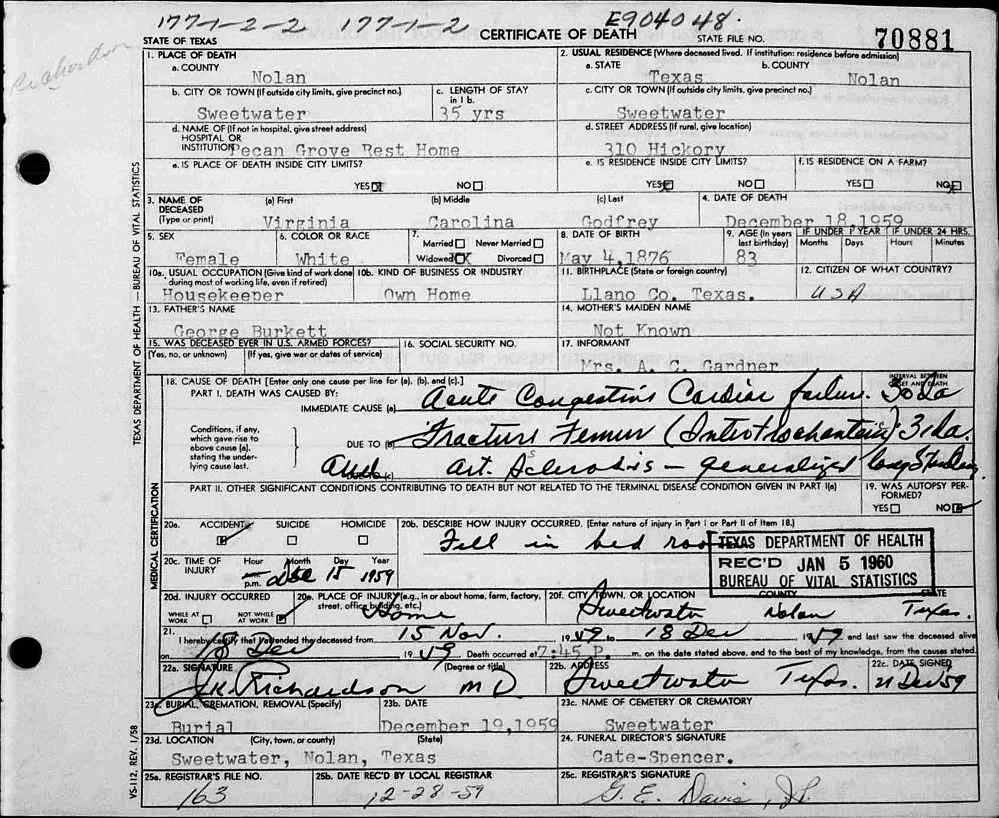 177-1-2-2 177-1-2 E904048.
STATE OF TEXAS CERTIFICATE OF DEATH STATE FILE NO. 70881
Richardson
1. PLACE OF DEATH
a. COUNTY
Nolan
2. USUAL RESIDENCE (Where deceased lived. If institution: residence before admission)
a. STATE b. COUNTY
Texas Nolan
b. CITY OR TOWN (If outside city limits, give precinct no.)
Sweetwater
c. LENGTH OF STAY in 1 b.
35 yrs
c. CITY OR TOWN (If outside city limits, give precinct no.)
Sweetwater
d. NAME OF (If not in hospital, give street address)
HOSPITAL OR
INSTITUTION Pecan Grove Rest Home
d. STREET ADDRESS (If rural, give location)
310 Hickory
e. IS PLACE OF DEATH INSIDE CITY LIMITS?
YES NO
e. IS RESIDENCE INSIDE CITY LIMITS?
YES NO
f. IS RESIDENCE ON A FARM?
YES NO
3. NAME OF DECEASED (Type or print)
(a) First (b) Middle (c) Last
Virginia Carolina Godfrey
4. DATE OF DEATH
December 18,1959
5. SEX
Female
6. COLOR OR RACE
White
7.
Married Never Married
Widowed X Divorced
8. DATE OF BIRTH
May 4,1876
9. AGE (In years last birthday)
83
IF UNDER 1 YEAR IF UNDER 24 HRS.
Months Days Hours Minutes
10a. USUAL OCCUPATION (Give kind of work done during most of working life, even if retired)
Housekeeper
10b. KIND OF BUSINESS OR INDUSTRY
Own Home
11. BIRTHPLACE (State or foreign country)
Llano Co. Texas.
12. CITIZEN OF WHAT COUNTRY?
USA
13. FATHER'S NAME
George Burkett
14. MOTHER'S MAIDEN NAME
Not Known
15. WAS DECEASED EVER IN U.S. ARMED FORCES?
(Yes, no, or unknown) (If yes, give war or dates of service)
16. SOCIAL SECURITY NO.
17. INFORMANT
Mrs. A. C. Gardner
18. CAUSE OF DEATH [Enter only one cause per line for (a), (b), and (c).]
PART I. DEATH WAS CAUSED BY:
INTERVAL BETWEEN ONSET AND DEATH
IMMEDIATE CAUSE (a) Acute Congestive Cardiac failure.
Conditions, if any, which gave rise to above cause (a), stating the underlying cause last.
DUE TO (b) Fracture Femur (Intertrochanteric) 3 da.
and DUE TO (c) Art. Sclerosis - generalized long standing
PART II. OTHER SIGNIFICANT CONDITIONS CONTRIBUTING TO DEATH BUT NOT RELATED TO THE TERMINAL DISEASE CONDITION GIVEN IN PART I(a)
19. WAS AUTOPSY PERFORMED?
YES NO
20a. ACCIDENT SUICIDE HOMICIDE
20b. DESCRIBE HOW INJURY OCCURRED. (Enter nature of injury in Part I or Part II of Item 18.)
Fell in bed room
TEXAS DEPARTMENT OF HEALTH
REC'D JAN 5 1960
BUREAU OF VITAL STATISTICS
20c. TIME OF INJURY
Hour Month Day Year
p.m. Dec 15 1959
20d. INJURY OCCURRED
WHILE AT WORK NOT WHILE AT WORK
20e. PLACE OF INJURY (e.g., in or about home, farm, factory, street, office building, etc.)
Home
20f. CITY, TOWN, OR LOCATION COUNTY STATE
Sweetwater Nolan Texas.
21. I hereby certify that I attended the deceased from 15 Nov. 1959 to 18 Dec 1959 and last saw the deceased alive
on 18 Dec 1959 Death occurred at 7:45 P. m. on the date stated above, and to the best of my knowledge, from the causes stated.
22a. SIGNATURE (Degree or title)
J.K. Richardson MD
22b. ADDRESS
Sweetwater Texas.
22c. DATE SIGNED
21 Dec 59
23a. BURIAL, CREMATION, REMOVAL (Specify)
Burial
23b. DATE
December 19,1959
23c. NAME OF CEMETERY OR CREMATORY
Sweetwater
23d. LOCATION (City, town, or county) (State)
Sweetwater, Nolan, Texas
24. FUNERAL DIRECTOR'S SIGNATURE
Cate-Spencer.
25a. REGISTRAR'S FILE NO.
163
25b. DATE REC'D BY LOCAL REGISTRAR
12-28-59
25c. REGISTRAR'S SIGNATURE
G. E. Davis, Jr.
TEXAS DEPARTMENT OF HEALTH — BUREAU OF VITAL STATISTICS
MEDICAL CERTIFICATION
VS-112, REV. 1/58